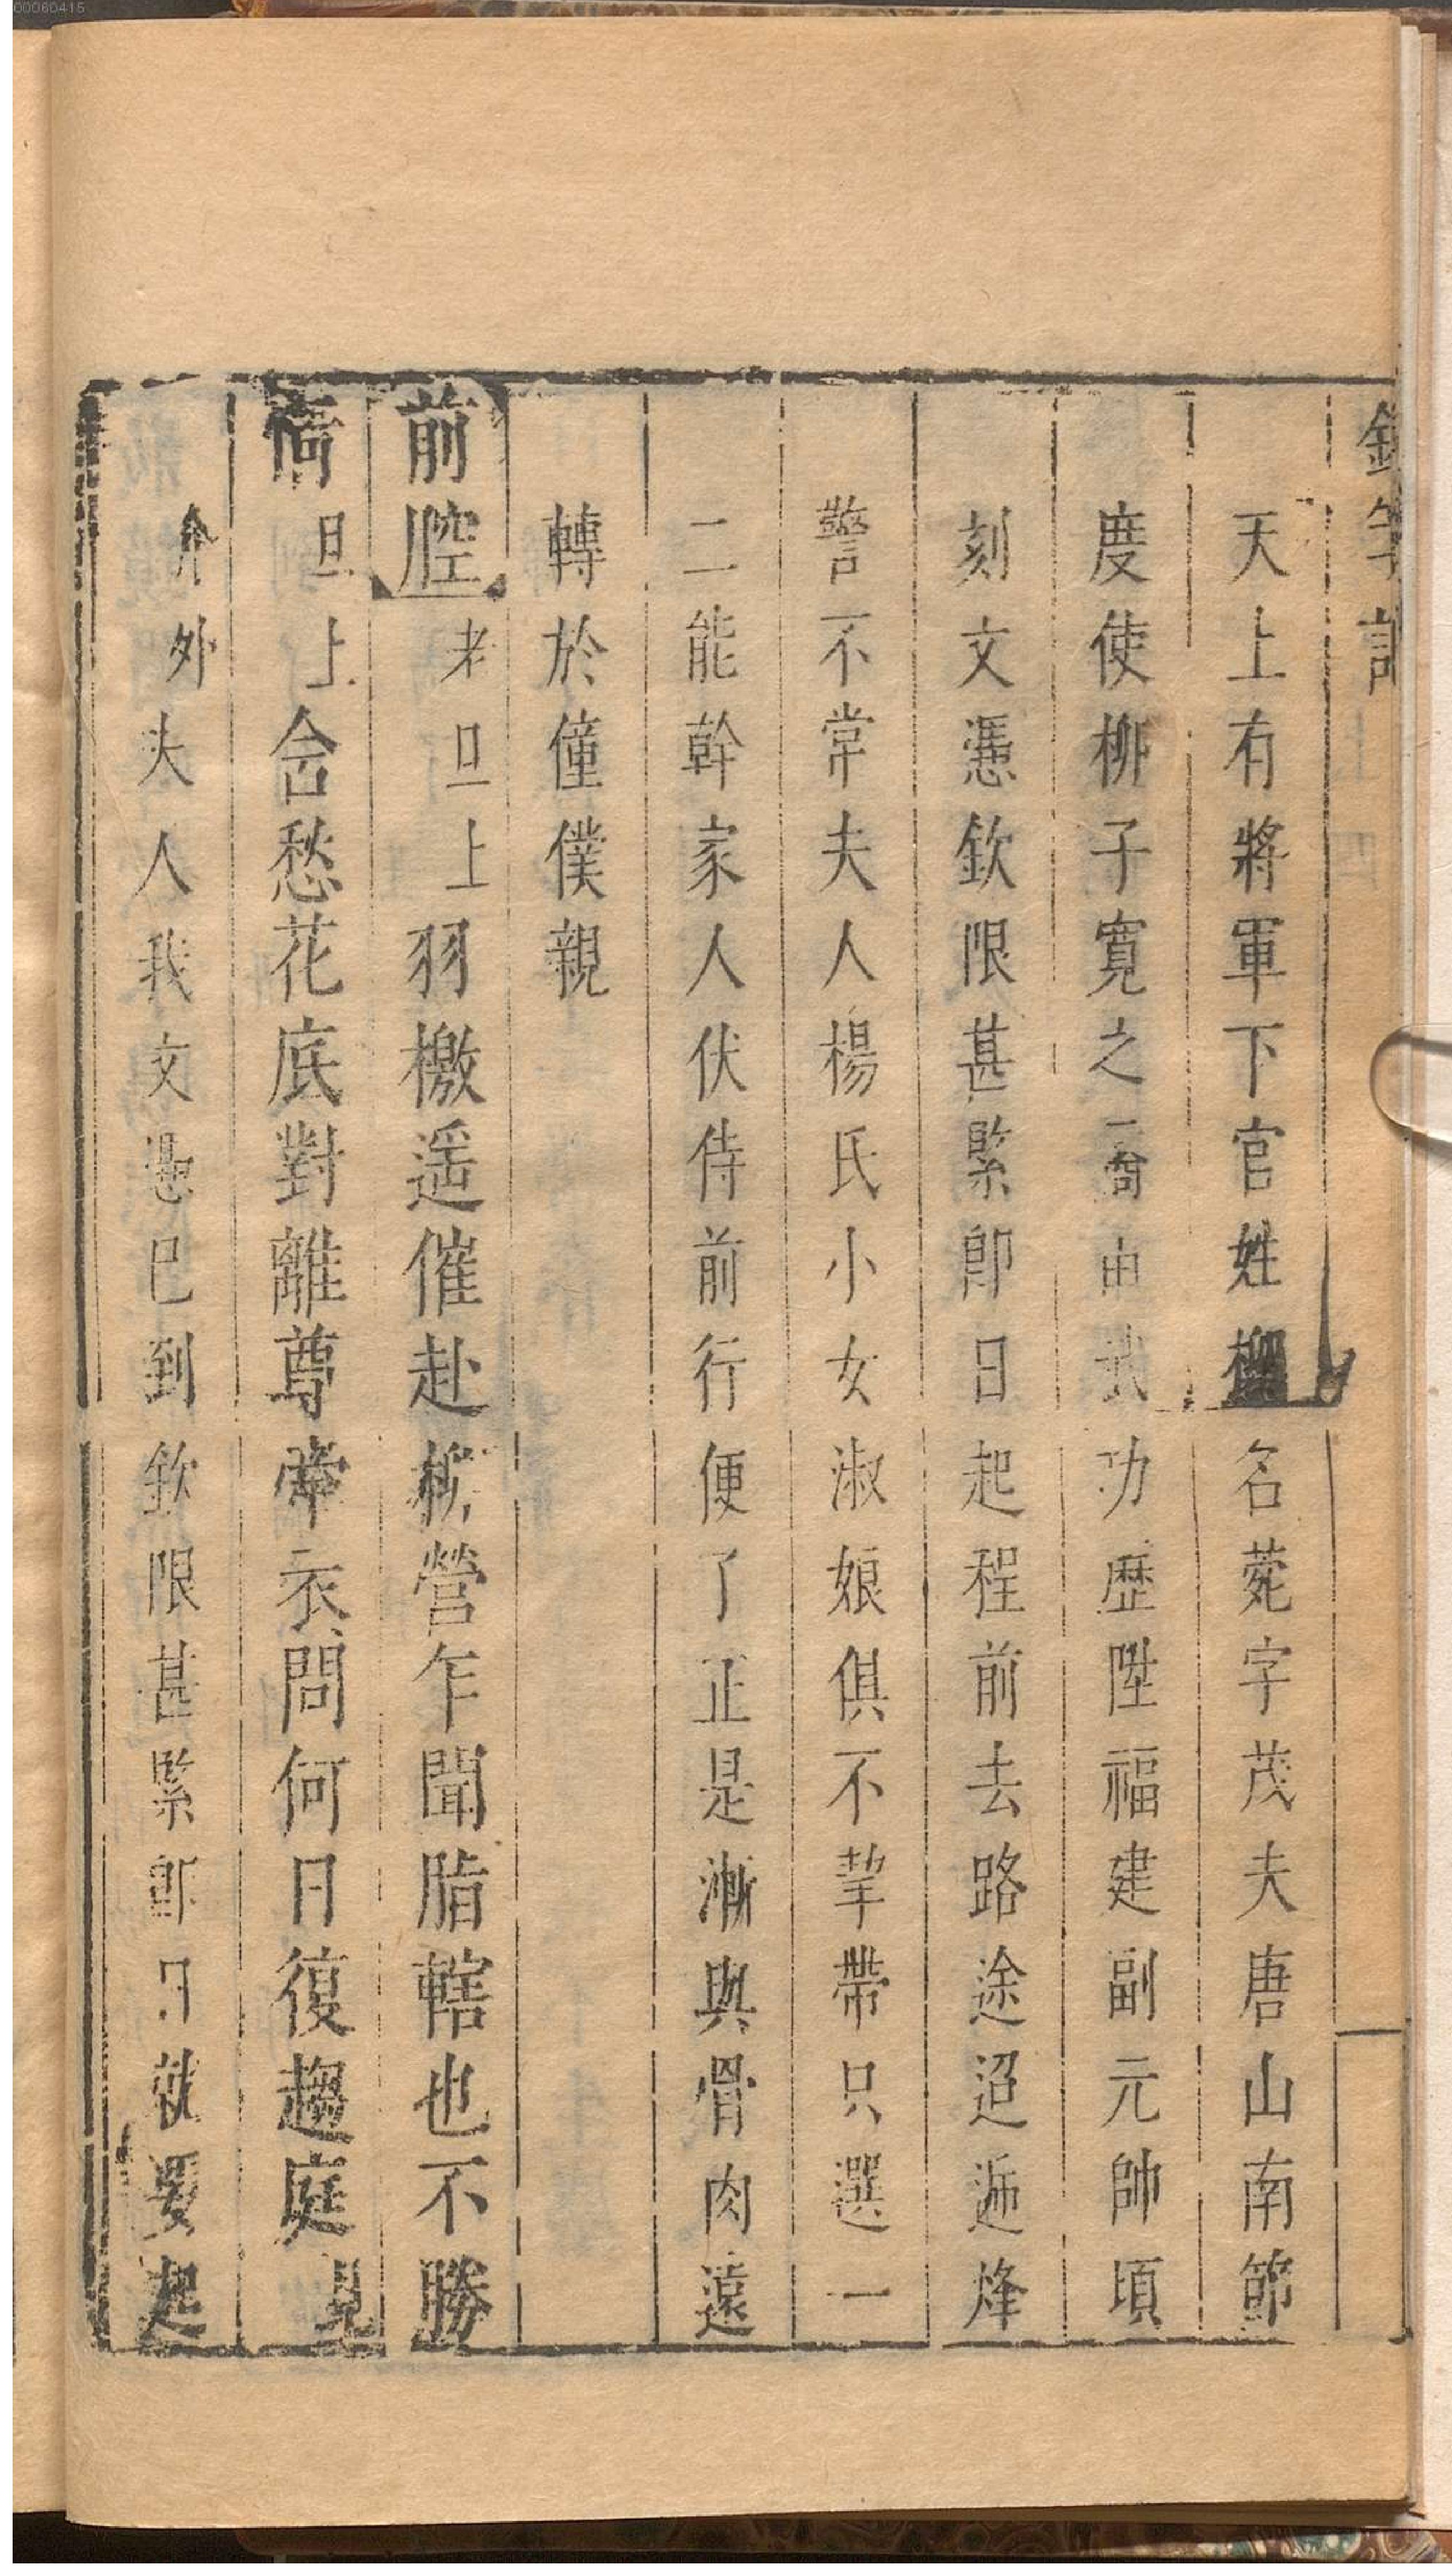 天上有將軍下官姓柳名菀字茂夫唐山南節
度使柳子寬之裔由武功歷陞福建副元帥頃
刻文憑欽限甚緊即日起程前去路途迢遞烽
警不常夫人楊氏小女淑娘俱不挈帶只選一
二能幹家人伏侍前行便了正是漸與骨肉遠
轉於僮僕親
前腔老旦上羽檄遥催赴柳營乍聞脂轄也不勝
情旦上含愁花底對離尊牽衣問何日復趨庭見
介外夫人我文憑已到欽限甚緊即日就要起
00060415